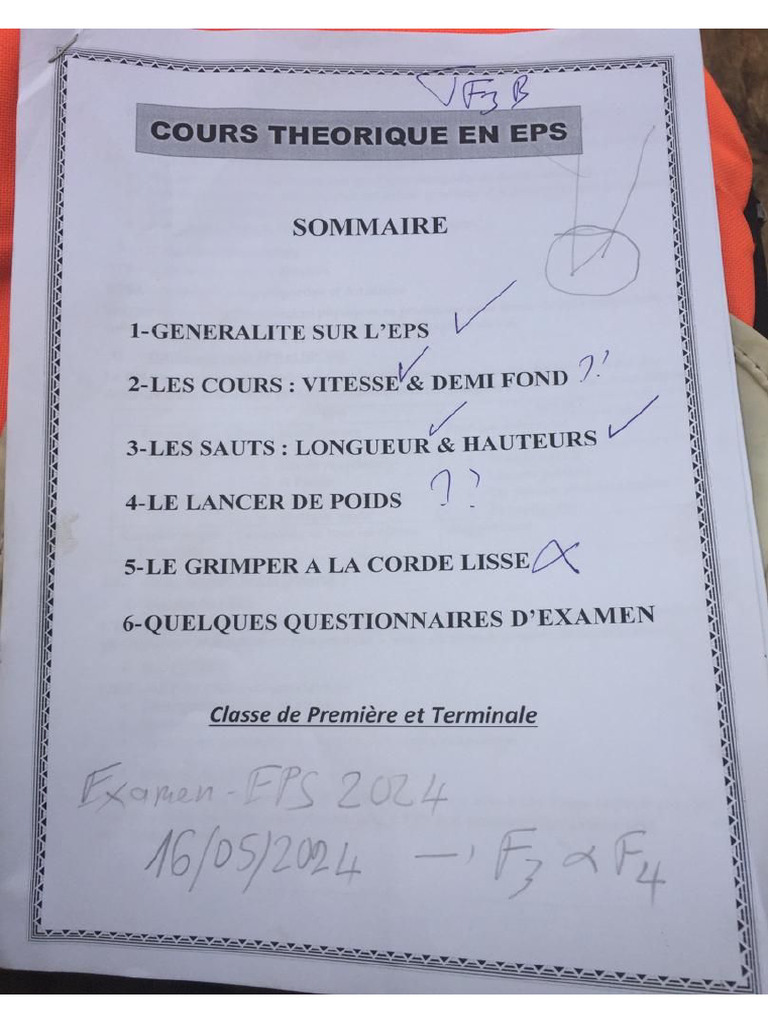 TF3 B
COURS THEORIQUE EN EPS
SOMMAIRE
1-GENERALITE SUR L'EPS
2-LES COURS : VITESSE & DEMI FOND ??
3-LES SAUTS : LONGUEUR & HAUTEURS
4-LE LANCER DE POIDS ??
5-LE GRIMPER A LA CORDE LISSE
6-QUELQUES QUESTIONNAIRES D'EXAMEN
Classe de Première et Terminale
Examen-EPS 2024
16/05/2024 → F3 & F4